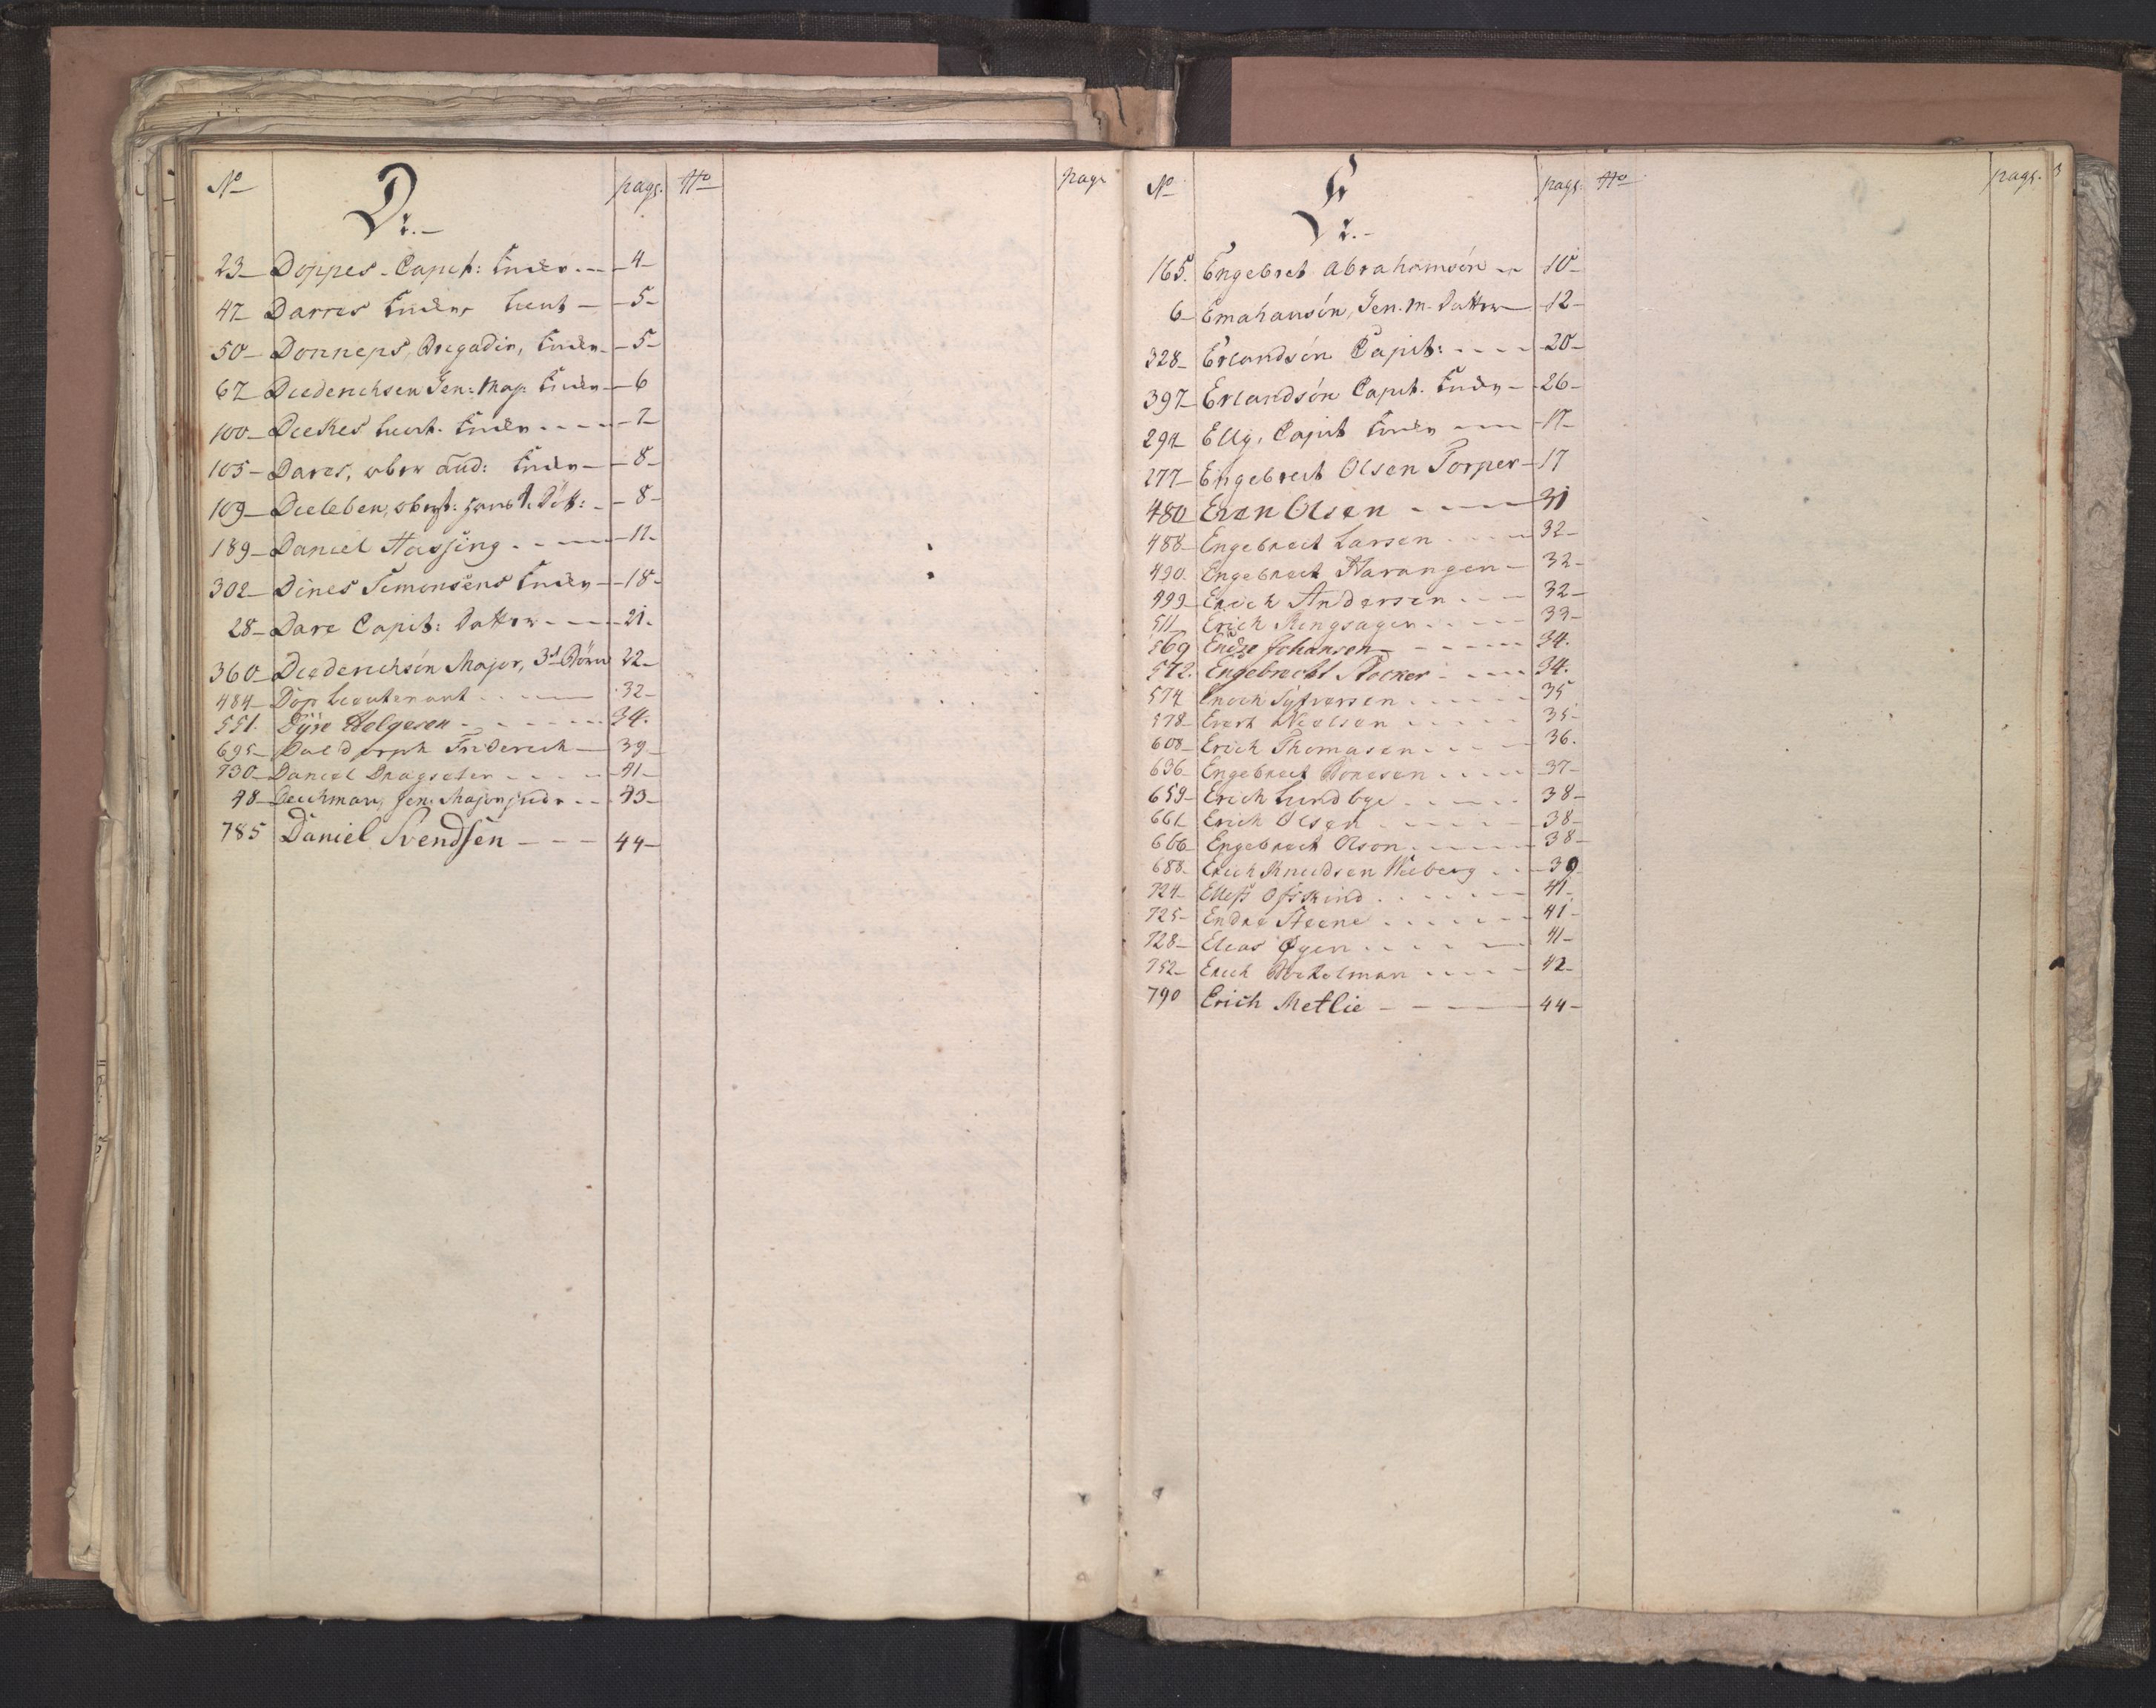 No D. pag. No pag.
23 Doppes Capit: Encke 4
47 Darres Encke Lieut 5
50 Donneps, Brigadir, Encke 5
67 Diederichsen Gen: Maj: Encke 6
100 Lieut. Encke 7
105 Dares, ober Aud: Encke 8
109 8
189 Daniel Hassing 11
302 Dines Simonsens Encke 18
28 Dare Capit: Datter 21
360 Diederichsen Major, 3de Börn 22
484 Dop Lieutenant 32
551. Dyre Helgesen 34.
695 Daldorph Friderich 39
730 Daniel Dragseter 41
48 Deichman, Gen: Major 43
785 Daniel Svendsen 44
No E. pag. No pag.
165. Engebret Abrahamsön 10
6 Emahausén, Gen. M. Datter 12
328 Erlandsén Capit: 20
397 Erlandsén Capit. Encke 26
294 Capit Encke 17
277 Engebret Olsen Torper 17
480 Even Olsen 31
488 Engebrect Larsen 32
490. Engebrect Harangen 32
499 Erich Andersen 32
511 Erich Ringsager 33
569 Endre Johansen 34.
572. Engebrecht Stocker 34.
574 Enoch Syfversen 35
578 Evert Nielsen 35
608 Erich Thomasen 36.
636 Engebrect Boresen 37
659 Erich Lundbye 38
661 Erich Olsen 38
666 Engebrect Olson 38
688 Erich Knudsen Wiberg 39
724 Ellef 41
725 Endre Steene 41
728 Elias Øyen 41
752 Erich 42
790 Erich Metlie 44